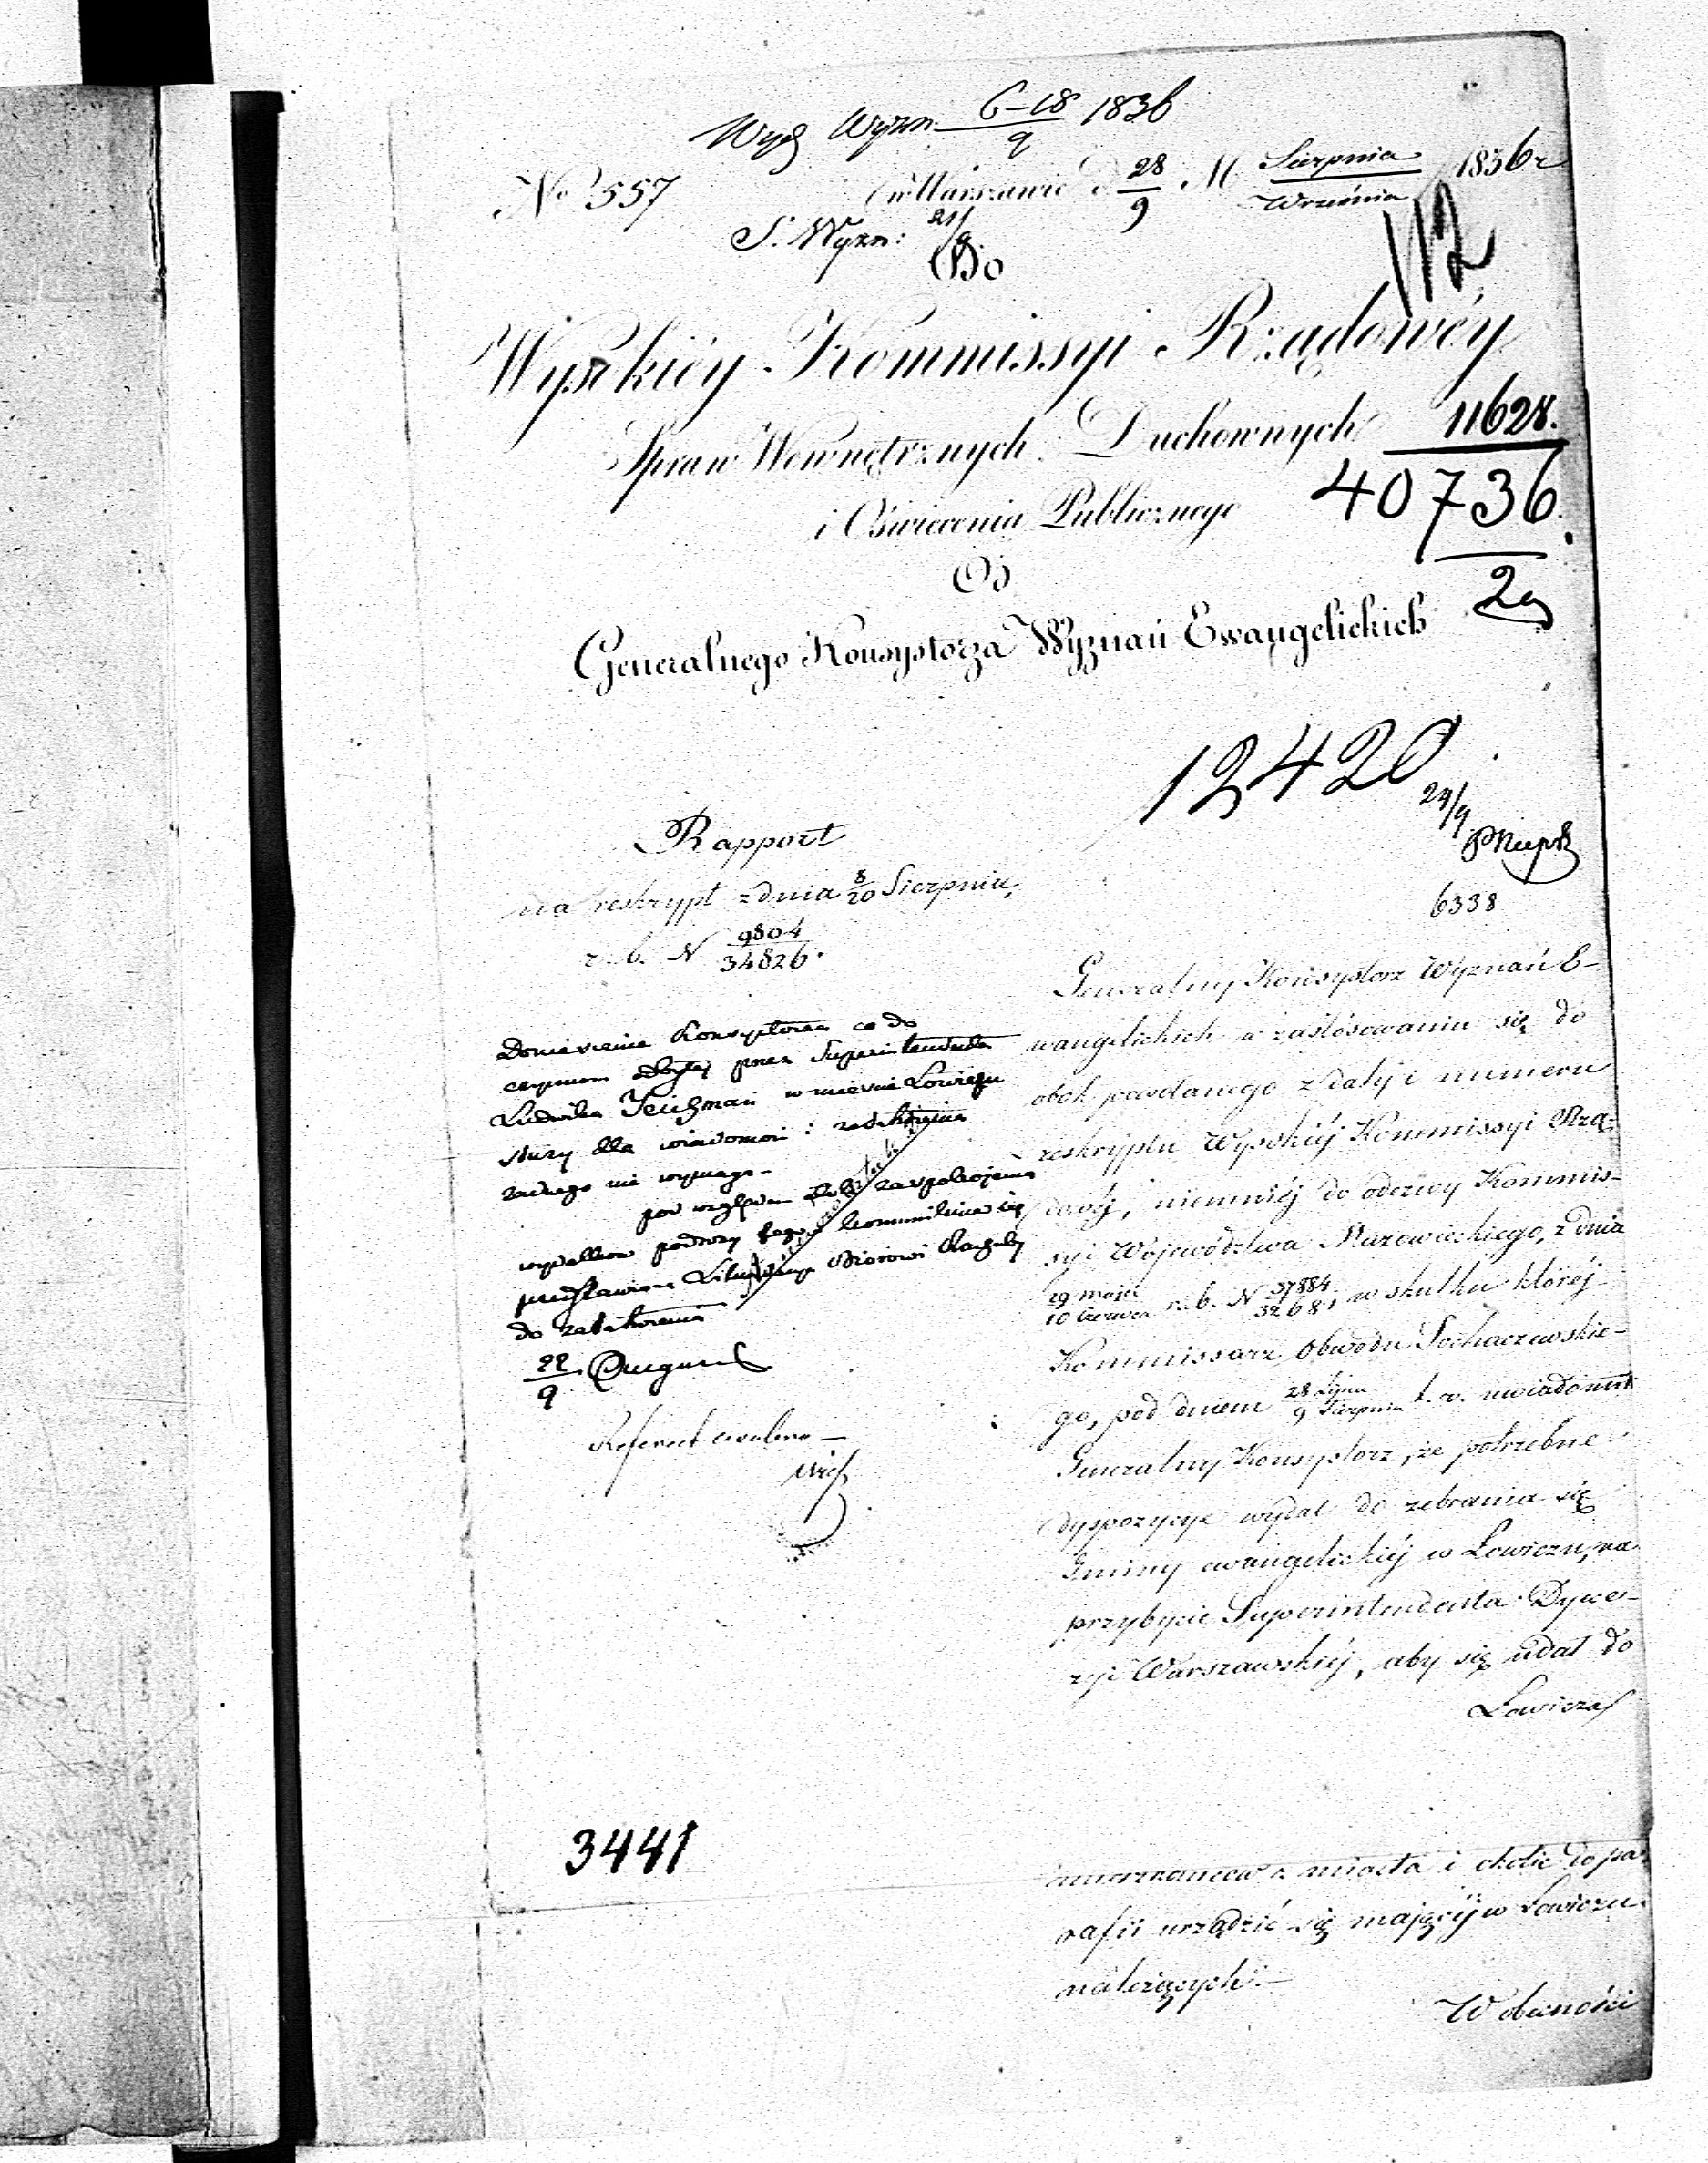 Wyd Wyzn. 6-18/9 1836
No 557 w Warszawie D 28/9 M Sierpnia/Września 1836 r
S. Wyzn: 21/9
Do
Wysokiéy Kommissyi Rządowéy
Spraw Wewnętrznych Duchownych
11628.
i Oświecenia Publicznego
40736.
2
Od
Generalnego Konsystorza Wyznań Ewangelickich
12420
24/9
Rapport
na reskrypt z dnia 8/20 Sierpnia,
r. b. N 9804/34826.
6338
Doniesienie Konsystorza co do
przez Superintendenta
Ludwika w mieście Łowiczu
dla wiadomości i
żadnego nie wymaga -
pod względem zaspokojenia
wydatków podróży kommunikuie się
do
22/9
Referent
Generalny Konsystorz Wyznań E-
wangelickich w zastósowaniu się do
obok powołanego z daty i numeru
reskryptu Wysokiéj Kommissyi Rzą-
dowéj, niemniéj do odezwy Kommis-
syi Województwa Mazowieckiego, z dnia
29 Maja/10 Czerwca r. b. N 37884/32681 w skutku któréj
Kommissarz Obwodu Sochaczewskie-
go, pod dniem 28 Lipca/9 Sierpnia t. r. uwiadomił
Generalny Konsystorz, że potrzebne
dyspozycye wydał do zebrania się
Gminy ewangelickiéj w Łowiczu, na
przybycie Superintendenta Dyece-
zyi Warszawskiéj, aby się udał do
Łowicza
3441
mieszkańców z miasta i okolic do pa-
rafii urządzić się mającéj w Łowiczu
należących.-
W obecności